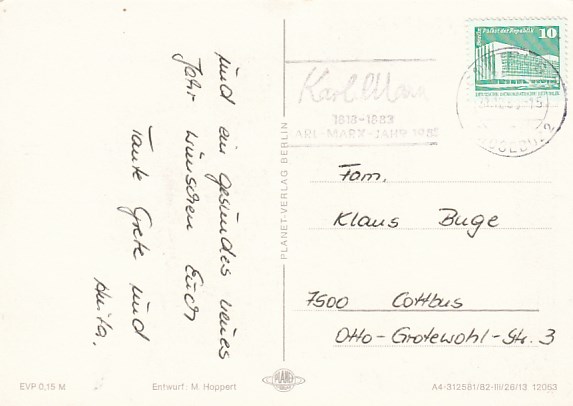 und ein gesundes neues
Jahr wünschen Euch
Tante Grete und
Anita.
PLANET-VERLAG BERLIN
Palast der Republik
10
DEUTSCHE DEMOKRATISCHE REPUBLIK
Karl Marx
1818-1883
KARL-MARX-JAHR 1983
Fam.
Klaus Buge
7500 Cottbus
Otto-Grotewohl-Str. 3
EVP 0,15 M
Entwurf: M. Hoppert
PLANET
A4-312581/82-III/26/13 12053